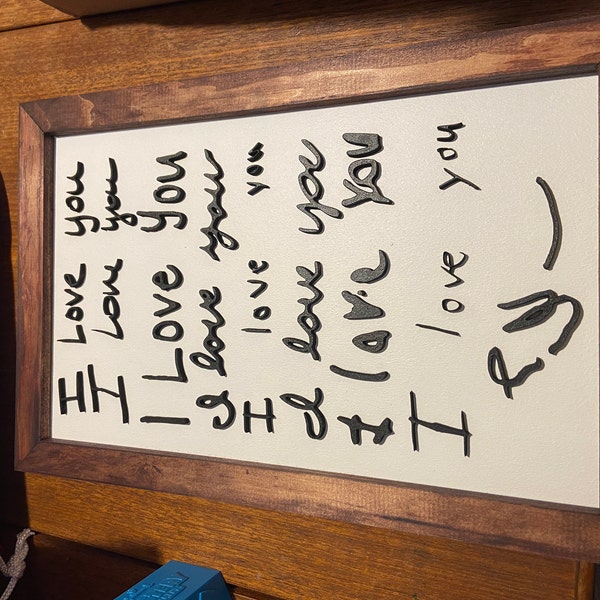 I Love you
I Love you
I Love you
I love you
I love you
I love you
I love you
I love you